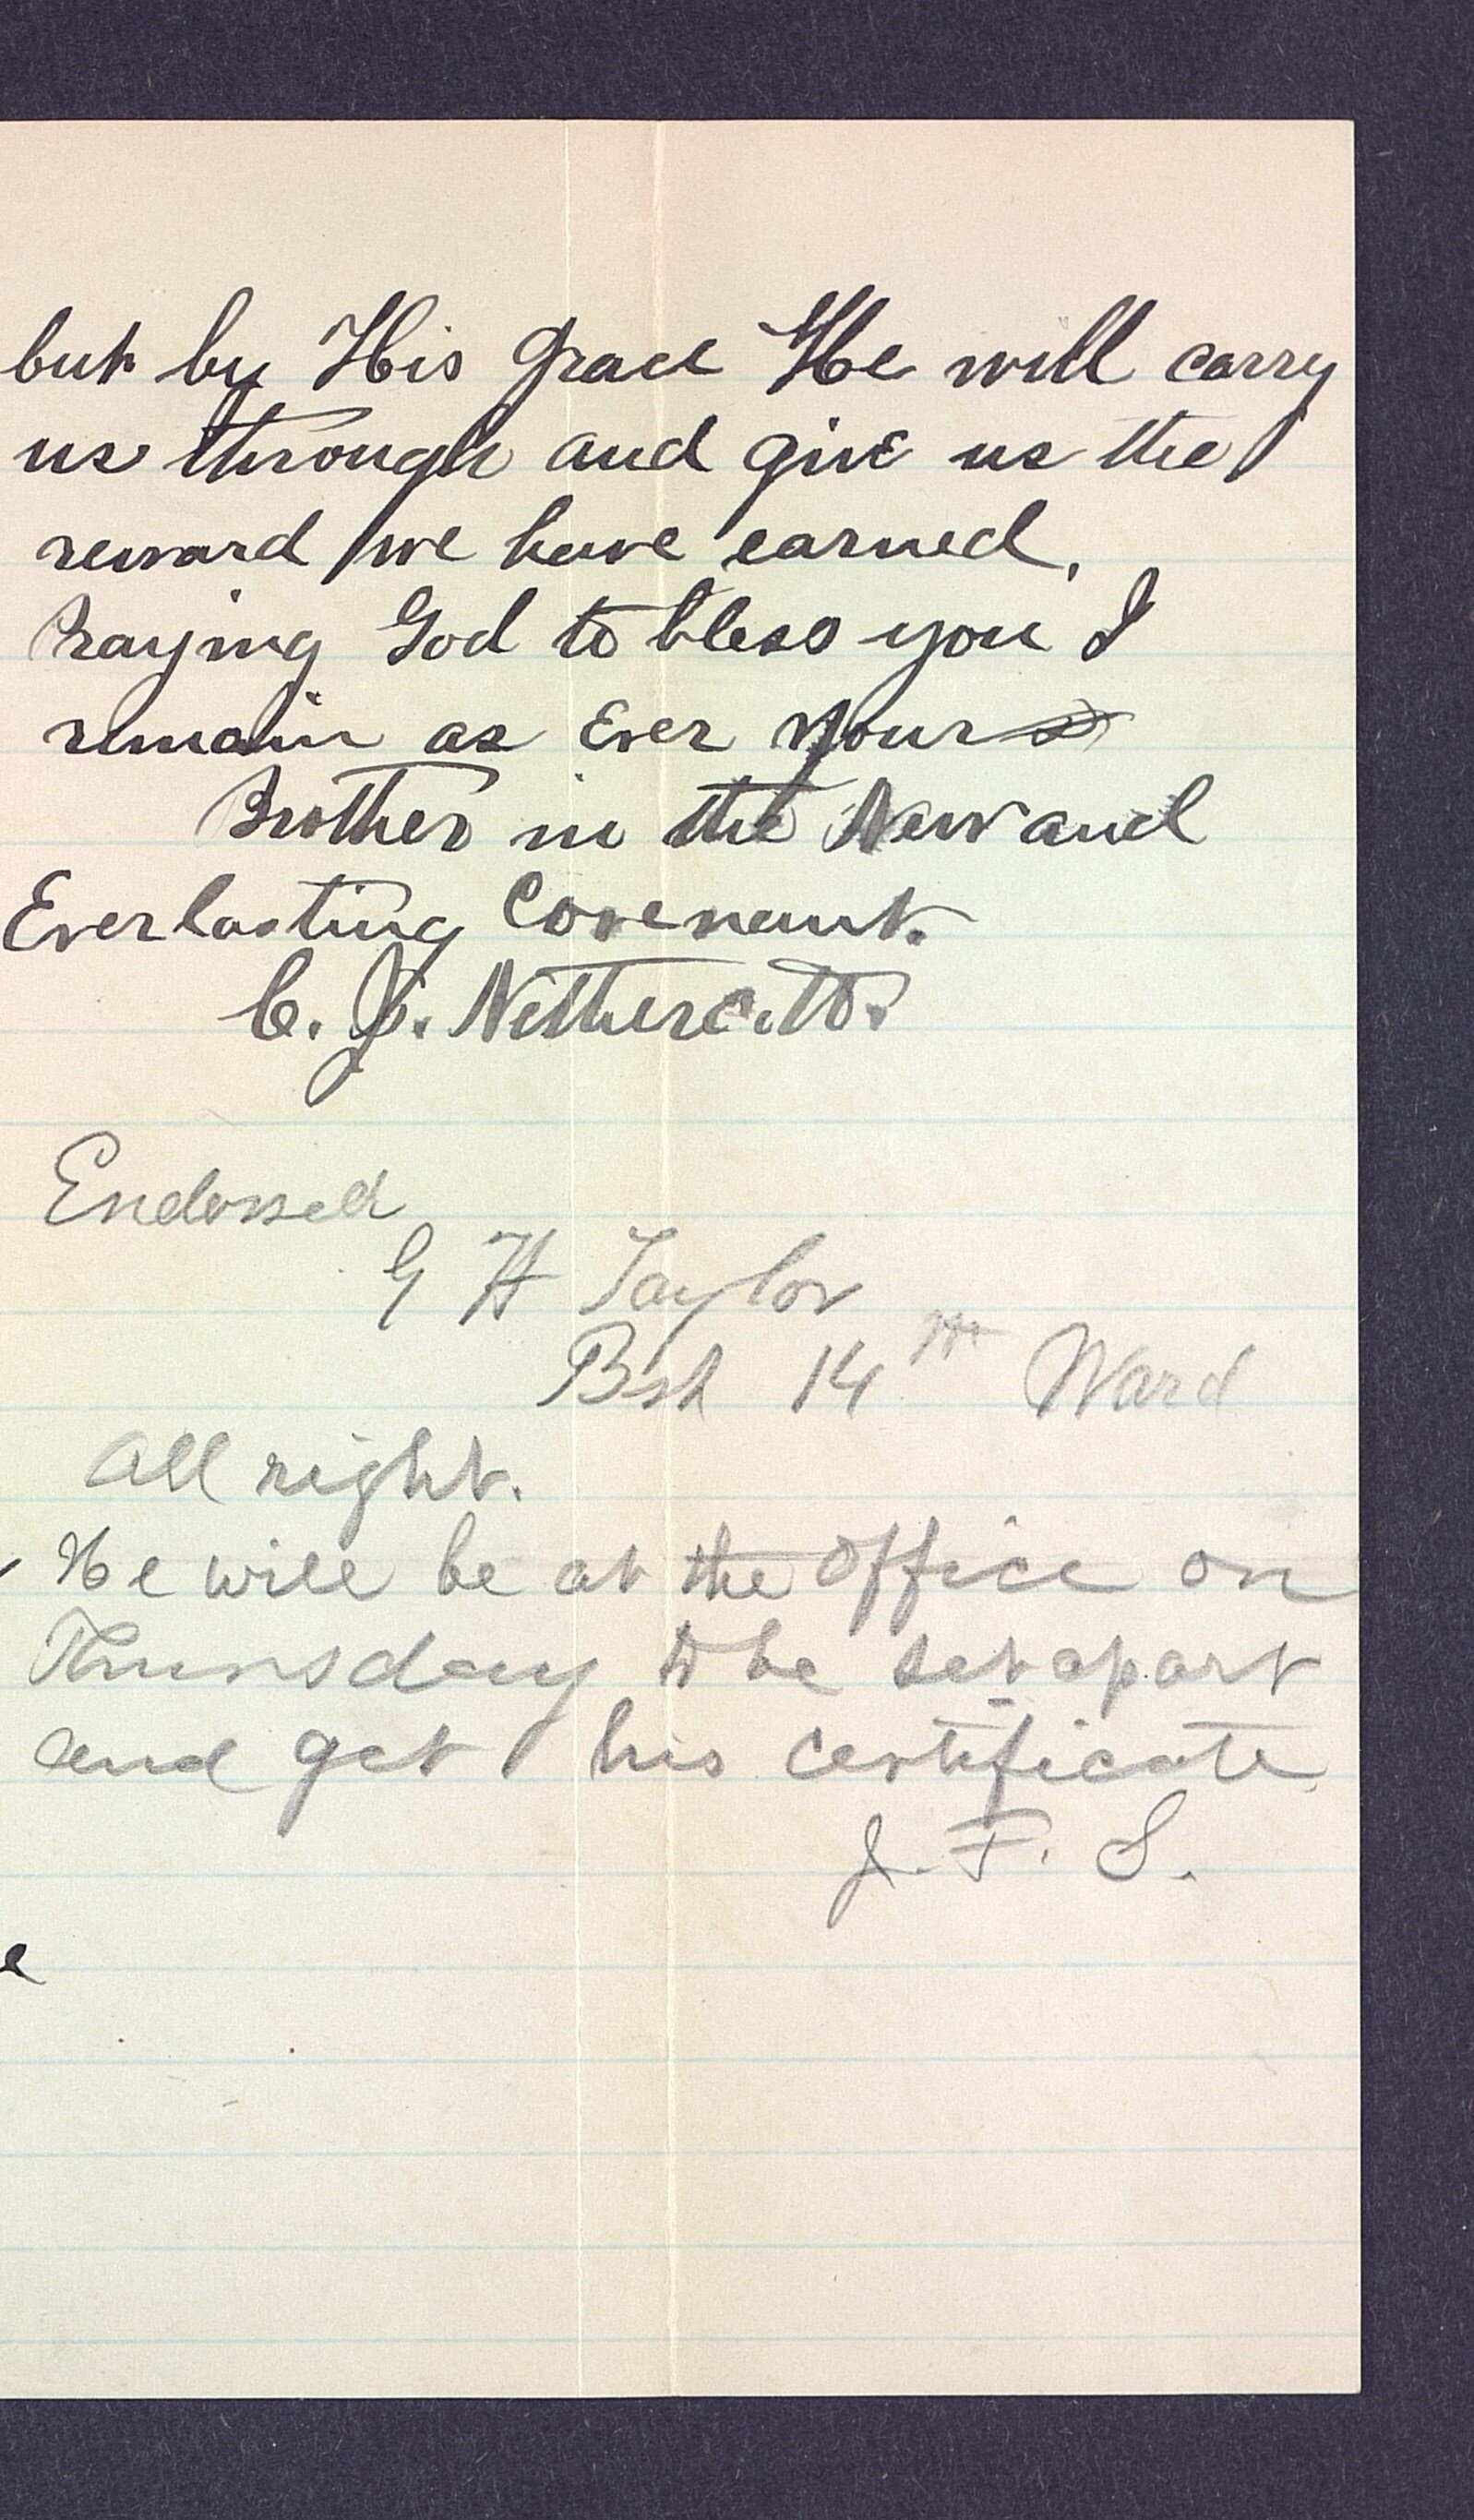 but by His Grace He will carry
us through and give us the
reward we have earned.
Praying God to bless you I
remain as Ever your
Brother in the New and
Everlasting Covenant.
C. J. Nettercott.
Endorsed
G H Taylor
Bsh 14th Ward
All right.
He will be at the office on
Thursday to be set apart
and get his certificate.
J. F. S.
e